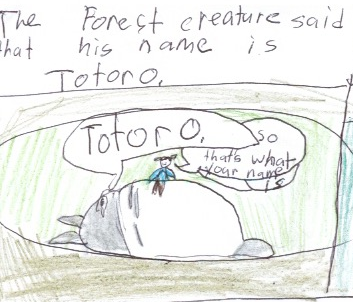 The Forest creature said
that his name is
Totoro.
Totoro.
so
that's what
your name
is